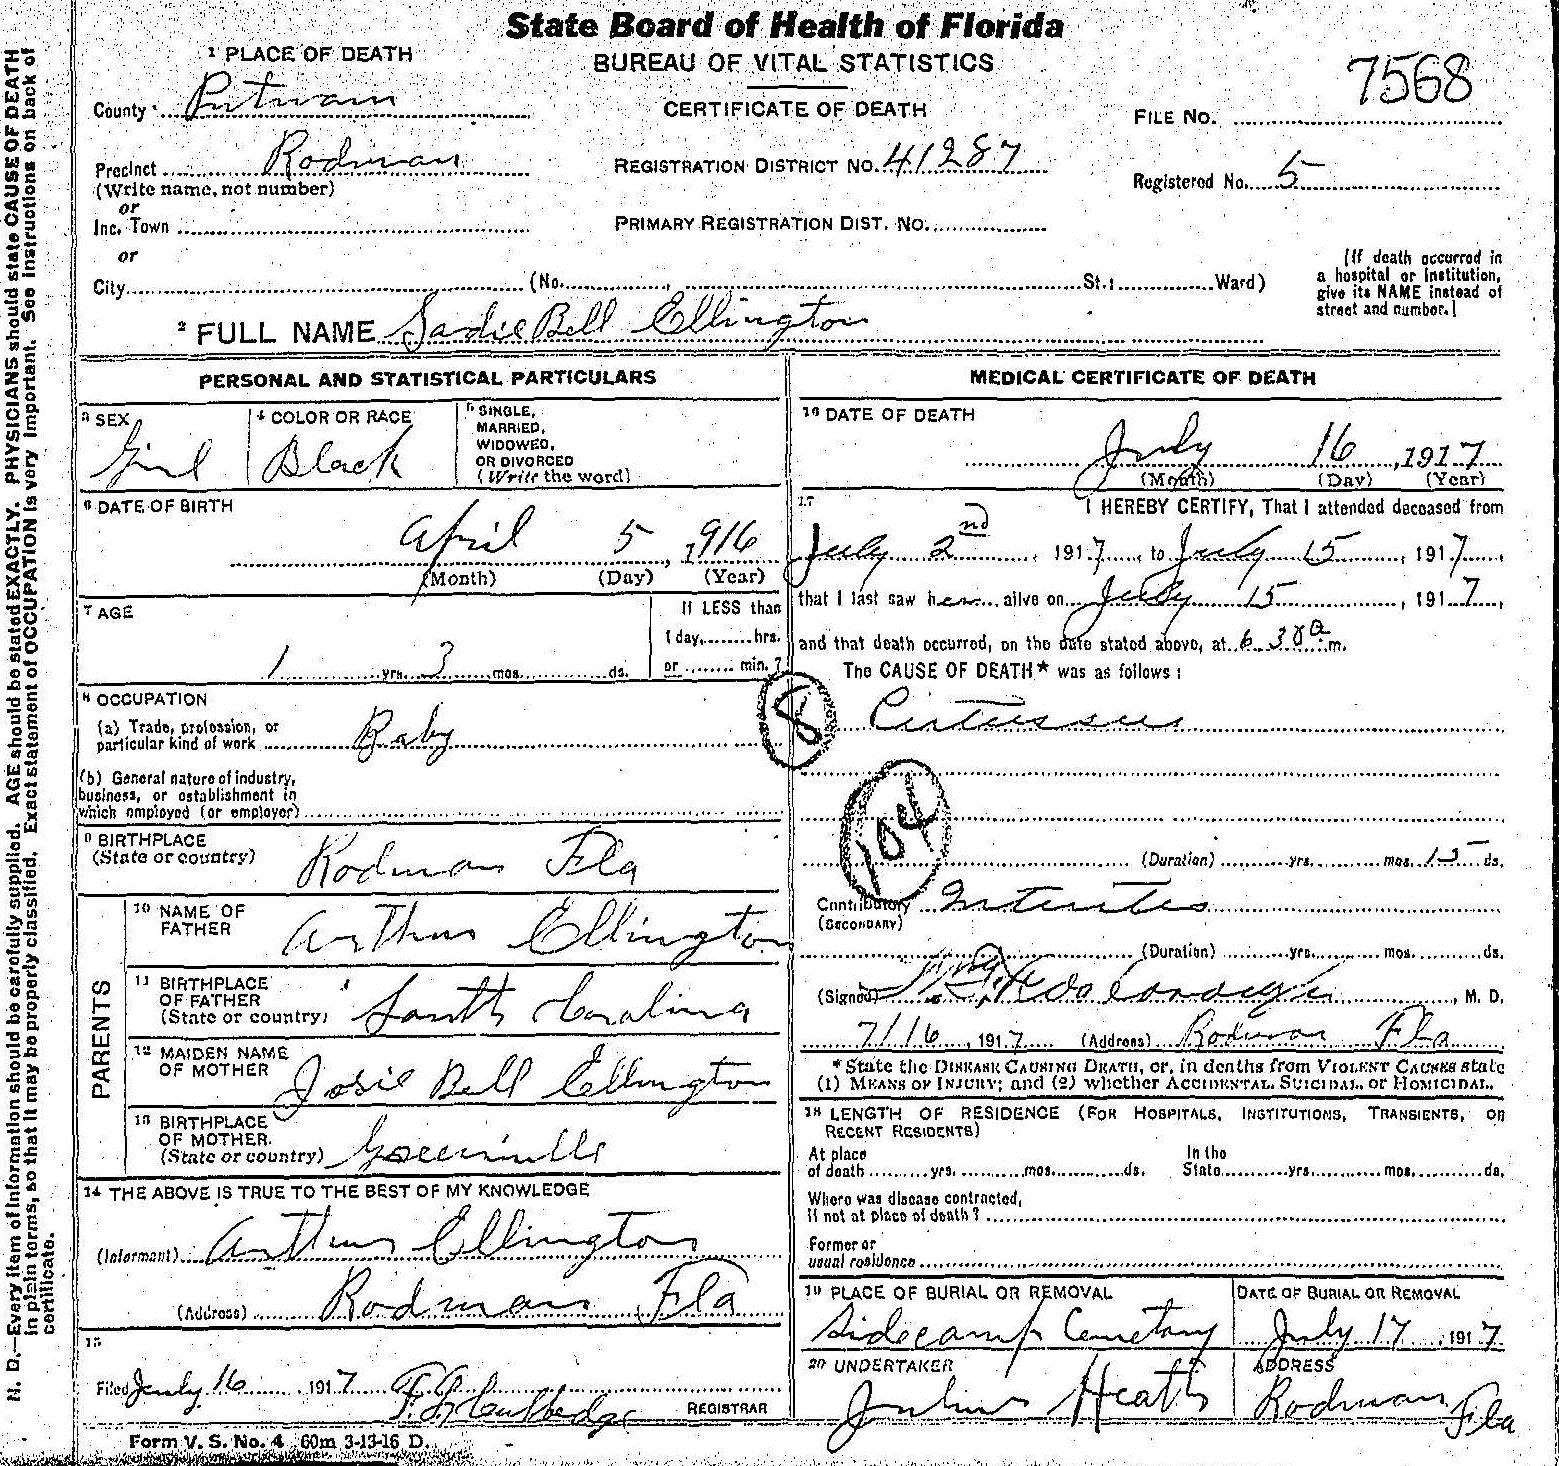 State Board of Health of Florida
BUREAU OF VITAL STATISTICS
CERTIFICATE OF DEATH
1 PLACE OF DEATH
County Putnam
Precinct Rodman
(Write name, not number)
or
Inc. Town
or
City (No. , St.; Ward)
REGISTRATION DISTRICT No. 41287
PRIMARY REGISTRATION DIST. No.
7568
FILE No.
Registered No. 5
[If death occurred in
a hospital or institution,
give its NAME instead of
street and number.]
2 FULL NAME Sadie Bell Ellington
PERSONAL AND STATISTICAL PARTICULARS
3 SEX
Girl
4 COLOR OR RACE
Black
5 SINGLE,
MARRIED,
WIDOWED,
OR DIVORCED
(Write the word)
6 DATE OF BIRTH
April 5, 1916
(Month) (Day) (Year)
7 AGE
1 yrs. 3 mos. ds.
If LESS than
1 day, hrs.
or min. ?
8 OCCUPATION
(a) Trade, profession, or
particular kind of work Baby
(b) General nature of industry,
business, or establishment in
which employed (or employer)
9 BIRTHPLACE
(State or country) Rodman Fla
PARENTS
10 NAME OF
FATHER Arthur Ellington
11 BIRTHPLACE
OF FATHER
(State or country) South Carolina
12 MAIDEN NAME
OF MOTHER Josie Bell Ellington
13 BIRTHPLACE
OF MOTHER
(State or country) Greenville
14 THE ABOVE IS TRUE TO THE BEST OF MY KNOWLEDGE
(Informant) Arthur Ellington
(Address) Rodman, Fla
15
Filed July 16, 1917
REGISTRAR
Form V. S. No. 4 60m 3-13-16 D.
MEDICAL CERTIFICATE OF DEATH
16 DATE OF DEATH
July 16, 1917
(Month) (Day) (Year)
17 I HEREBY CERTIFY, That I attended deceased from
July 2nd, 1917, to July 15, 1917,
that I last saw her alive on July 15, 1917,
and that death occurred, on the date stated above, at 6 30 a m.
The CAUSE OF DEATH* was as follows:
8
Pertussus
104
(Duration) yrs. mos. 15 ds.
Contributory Interites
(SECONDARY)
(Duration) yrs. mos. ds.
(Signed) , M. D.
7/16, 1917 (Address) Rodman Fla
*State the DISEASE CAUSING DEATH, or, in deaths from VIOLENT CAUSES state
(1) MEANS OF INJURY; and (2) whether ACCIDENTAL, SUICIDAL, or HOMICIDAL.
18 LENGTH OF RESIDENCE (FOR HOSPITALS, INSTITUTIONS, TRANSIENTS, OR
RECENT RESIDENTS)
At place
of death yrs. mos. ds.
In the
State yrs. mos. ds.
Where was disease contracted,
if not at place of death ?
Former or
usual residence
19 PLACE OF BURIAL OR REMOVAL
Sidecamp Cemetary
DATE OF BURIAL OR REMOVAL
July 17, 1917
20 UNDERTAKER
Julius Heath
ADDRESS
Rodman Fla
N. B.—Every item of information should be carefully supplied. AGE should be stated EXACTLY. PHYSICIANS should state CAUSE OF DEATH
in plain terms, so that it may be properly classified. Exact statement of OCCUPATION is very important. See instructions on back of
certificate.